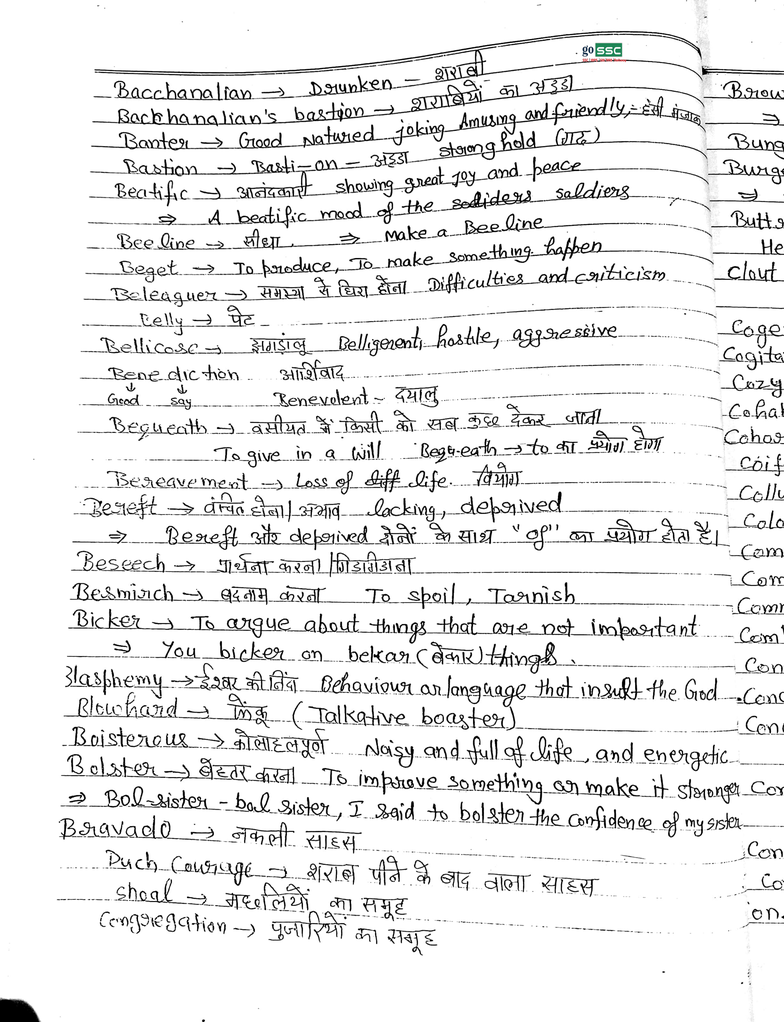 go SSC
Bacchanalian → Drunken – शराबी
Bachhanalian's bastion → शराबियों का अड्डा
Banter → Good Natured joking Amusing and friendly,= हंसी मजाक
Bastion → Basti-on – अड्डा stronghold (गढ़)
Beatific → आनंदकारी showing great joy and peace
⇒ A beatific mood of the saldiers
Bee line → सीधा. ⇒ Make a Bee line
Beget → To produce, To make something happen
Beleaguer → समस्या से घिरा होना Difficulties and criticism
Belly → पेट
Bellicose → झगड़ालू Belligerent, hostile, aggressive
Benediction आर्शिवाद
↓ ↓
Good say Benevolent – दयालु
Bequeath → वसीयत में किसी को सब कुछ देकर जाना
To give in a will Bequ-eath → to का प्रयोग होगा
Bereavement → Loss of life. वियोग
Bereft → वंचित होना/अभाव lacking, deprived
⇒ Bereft और deprived दोनों के साथ "of" का प्रयोग होता है।
Beseech → प्रार्थना करना/गिडागीडाना
Besmirch → बदनाम करना To spoil, Tarnish
Bicker → To argue about things that are not important
⇒ You bicker on bekar (बेकार) things.
Blasphemy → ईश्वर की निंदा Behaviour or language that insult the God
Blowhard → फेंकू (Talkative boaster)
Boisterous → कोलाहलपूर्ण Noisy and full of life, and energetic
Bolster → बेहतर करना To improve something or make it stronger
⇒ Bol-sister – bol sister, I said to bolster the confidence of my sister
Bravado → नकली साहस
Duch Courage → शराब पीने के बाद वाला साहस
shoal → मछलियों का समूह
Congregation → पुजारियों का समूह
Brow
⇒
Bung
Burg
⇒
Butts
He
Clout
Coge
Cogita
Cozy
Cohat
Cohor
Coif
Collu
Colo
Com
Com
Comm
Com
Con
Conc
Con
Cor
Con
Co
on.